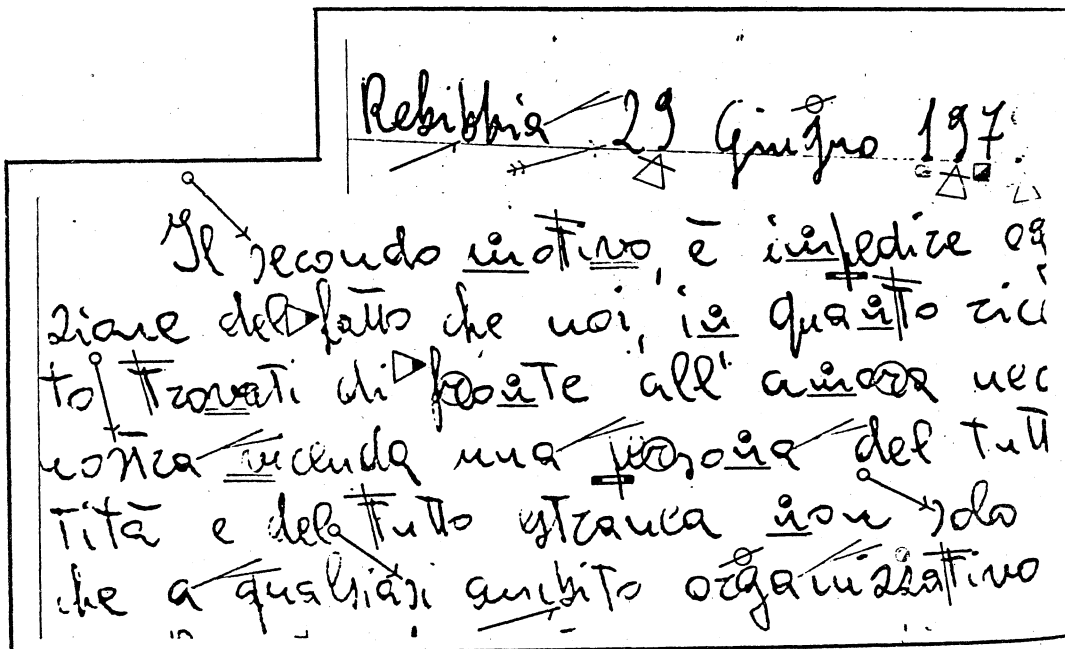 Rebibbia 29 Giugno 197
Il secondo motivo, è impedire
zione del fatto che noi, in quanto
to trovati di fronte all' amara nec
nostra vicenda una persona del tutt
tità e del tutto estranea non solo
che a qualsiasi ambito organizzativo